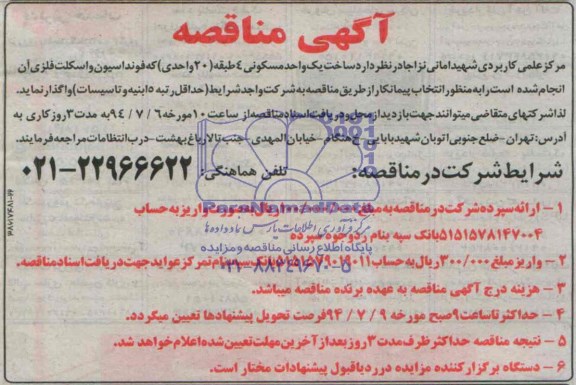 آگهی مناقصه
مرکز علمی کاربردی شهید امانی نزاجا در نظر دارد ساخت یک واحد مسکونی ۴ طبقه (۲۰ واحدی) که فونداسیون و اسکلت فلزی آن
انجام شده است را به منظور انتخاب پیمانکار از طریق مناقصه به شرکت واجد شرایط (حداقل رتبه ۵ ابنیه و تاسیسات) واگذار نماید.
لذا شرکتهای متقاضی میتوانند جهت بازدید از محل و دریافت اسناد مناقصه از ساعت ۱۰ مورخه ۹۴/۷/۶ به مدت ۳ روز کاری به
آدرس: تهران - ضلع جنوبی اتوبان شهید بابایی - هنگام - خیابان المهدی - جنب تالار باغ بهشت - درب انتظامات مراجعه فرمایند.
شرایط شرکت در مناقصه: تلفن هماهنگی: ۲۲۹۶۶۶۲۲-۰۲۱
۱ - ارائه سپرده شرکت در مناقصه به مبلغ ریال بصورت واریز به حساب
۵۱۵۱۵۷۸۱۴۷۰۰۴ بانک سپه بنام رد وجوه سپرده
۲ - واریز مبلغ ۳۰۰/۰۰۰ ریال به حساب بانک سپه بنام تمرکز عواید جهت دریافت اسناد مناقصه.
۳ - هزینه درج آگهی مناقصه به عهده برنده مناقصه میباشد.
۴ - حداکثر تا ساعت ۹ صبح مورخه ۹۴/۷/۹ فرصت تحویل پیشنهادها تعیین میگردد.
۵ - نتیجه مناقصه حداکثر ظرف مدت ۳ روز بعد از آخرین مهلت تعیین شده اعلام خواهد شد.
۶ - دستگاه برگزار کننده مزایده در رد یا قبول پیشنهادات مختار است.
ParsNamadData
مرکز فرآوری اطلاعات پارس نماد داده ها
پایگاه اطلاع رسانی مناقصه و مزایده
۰۲۱-۸۸۳۴۹۶۷۰-۵